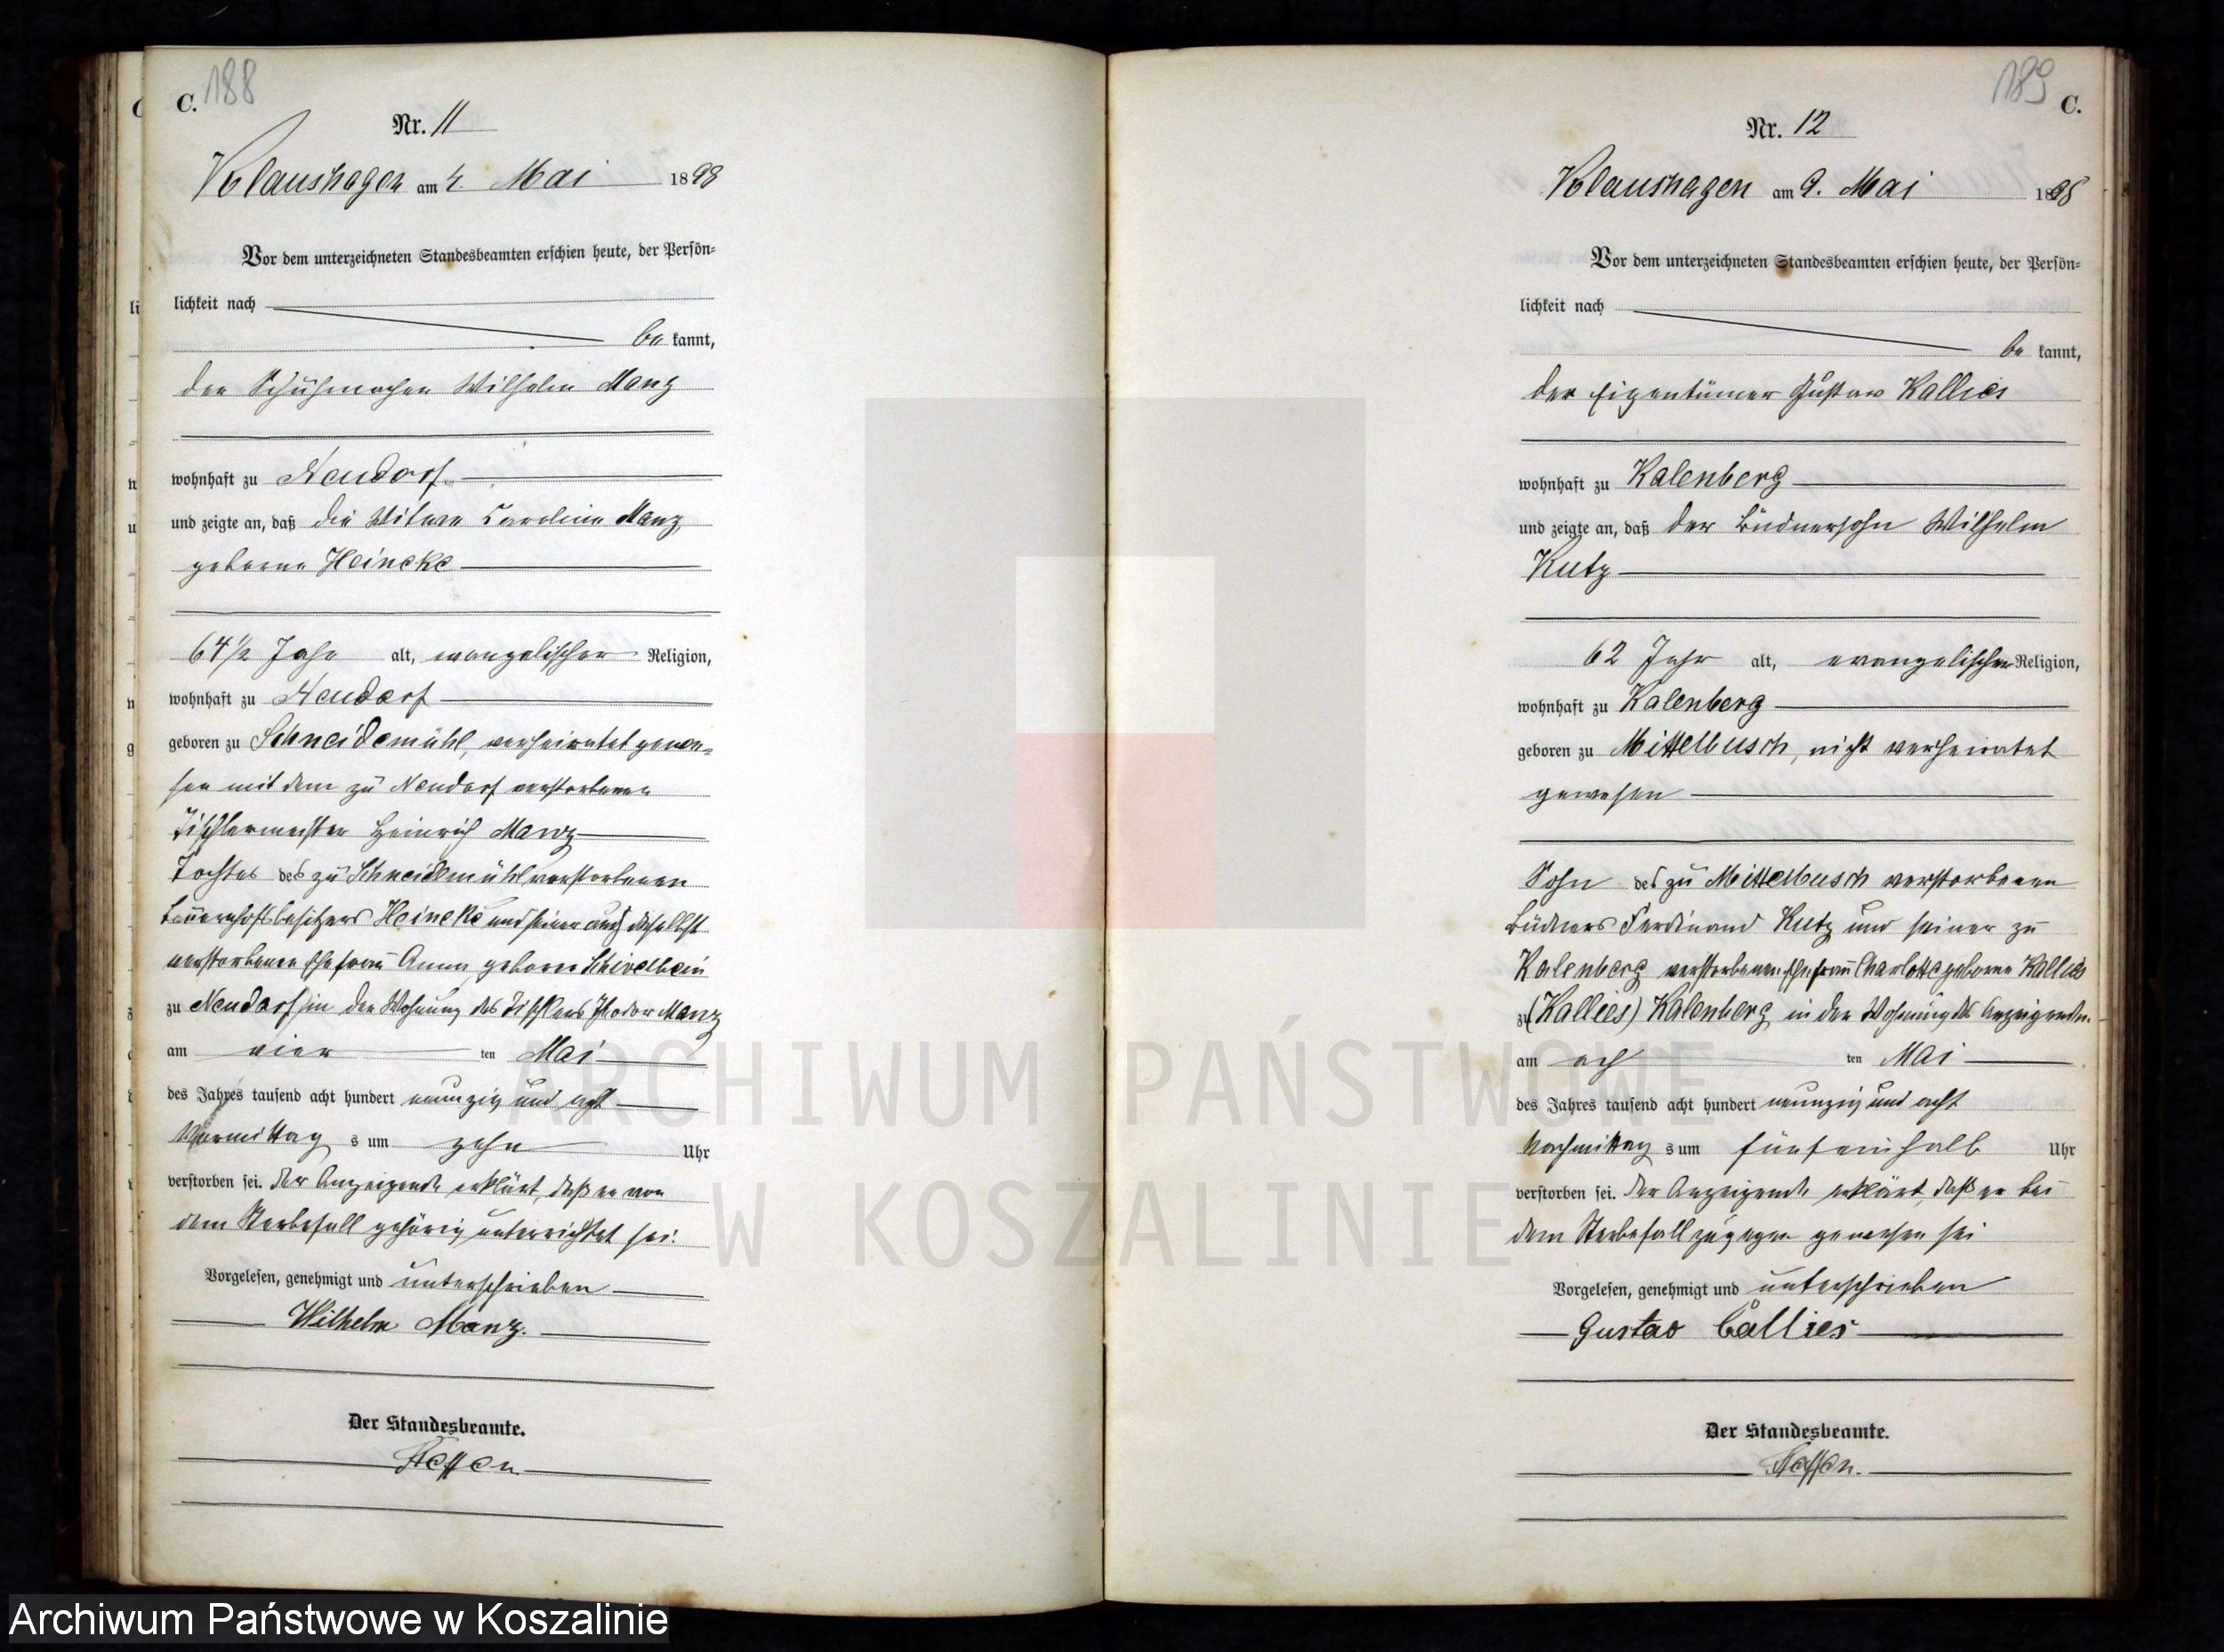 C. 188
Nr. 11
Klaushagen am 4. Mai 1898
Vor dem unterzeichneten Standesbeamten erschien heute, der Persön-
lichkeit nach
be kannt,
der Schuhmacher Wilhelm Manz
wohnhaft zu Neudorf
und zeigte an, daß die Witwe Caroline Manz
geborne Heincke
64 1/2 Jahr alt, evangelischer Religion,
wohnhaft zu Neudorf
geboren zu Schneidemühl, verheiratet gewe-
sen mit dem zu Neudorf verstorbenen
Tischlermeister Heinrich Manz
Tochter des zu Schneidemühl verstorbenen
Bauernhofsbesitzers Heincke und seiner auch daselbst
verstorbenen Ehefrau Anna geboren Schivelbein
zu Neudorf in der Wohnung des Tischlers Theodor Manz
am vier ten Mai
des Jahres tausend acht hundert neunzig und acht
Vormittag s um zehn Uhr
verstorben sei. Der Anzeigende erklärt, daß er von
dem Sterbefall gehörig unterrichtet sei.
Vorgelesen, genehmigt und unterschrieben
Wilhelm Manz.
Der Standesbeamte.
Steffen
189 C.
Nr. 12
Klaushagen am 9. Mai 1898
Vor dem unterzeichneten Standesbeamten erschien heute, der Persön-
lichkeit nach
be kannt,
der Eigentümer Gustav Kallies
wohnhaft zu Kalenberg
und zeigte an, daß der Büdnersohn Wilhelm
Kutz
62 Jahr alt, evangelischer Religion,
wohnhaft zu Kalenberg
geboren zu Mittelbusch, nicht verheiratet
gewesen
Sohn des zu Mittelbusch verstorbenen
Büdners Ferdinand Kutz und seiner zu
Kalenberg verstorbenen Ehefrau Charlotte geborne Kallies
zu (Kallies) Kalenberg in der Wohnung des Anzeigenden
am ach ten Mai
des Jahres tausend acht hundert neunzig und acht
Nachmittag s um fünfeinhalb Uhr
verstorben sei. Der Anzeigende erklärt, daß er bei
dem Sterbefall zugegen gewesen sei
Vorgelesen, genehmigt und unterschrieben
Gustav Callies
Der Standesbeamte.
Steffen.
ARCHIWUM PAŃSTWOWE
W KOSZALINIE
Archiwum Państwowe w Koszalinie